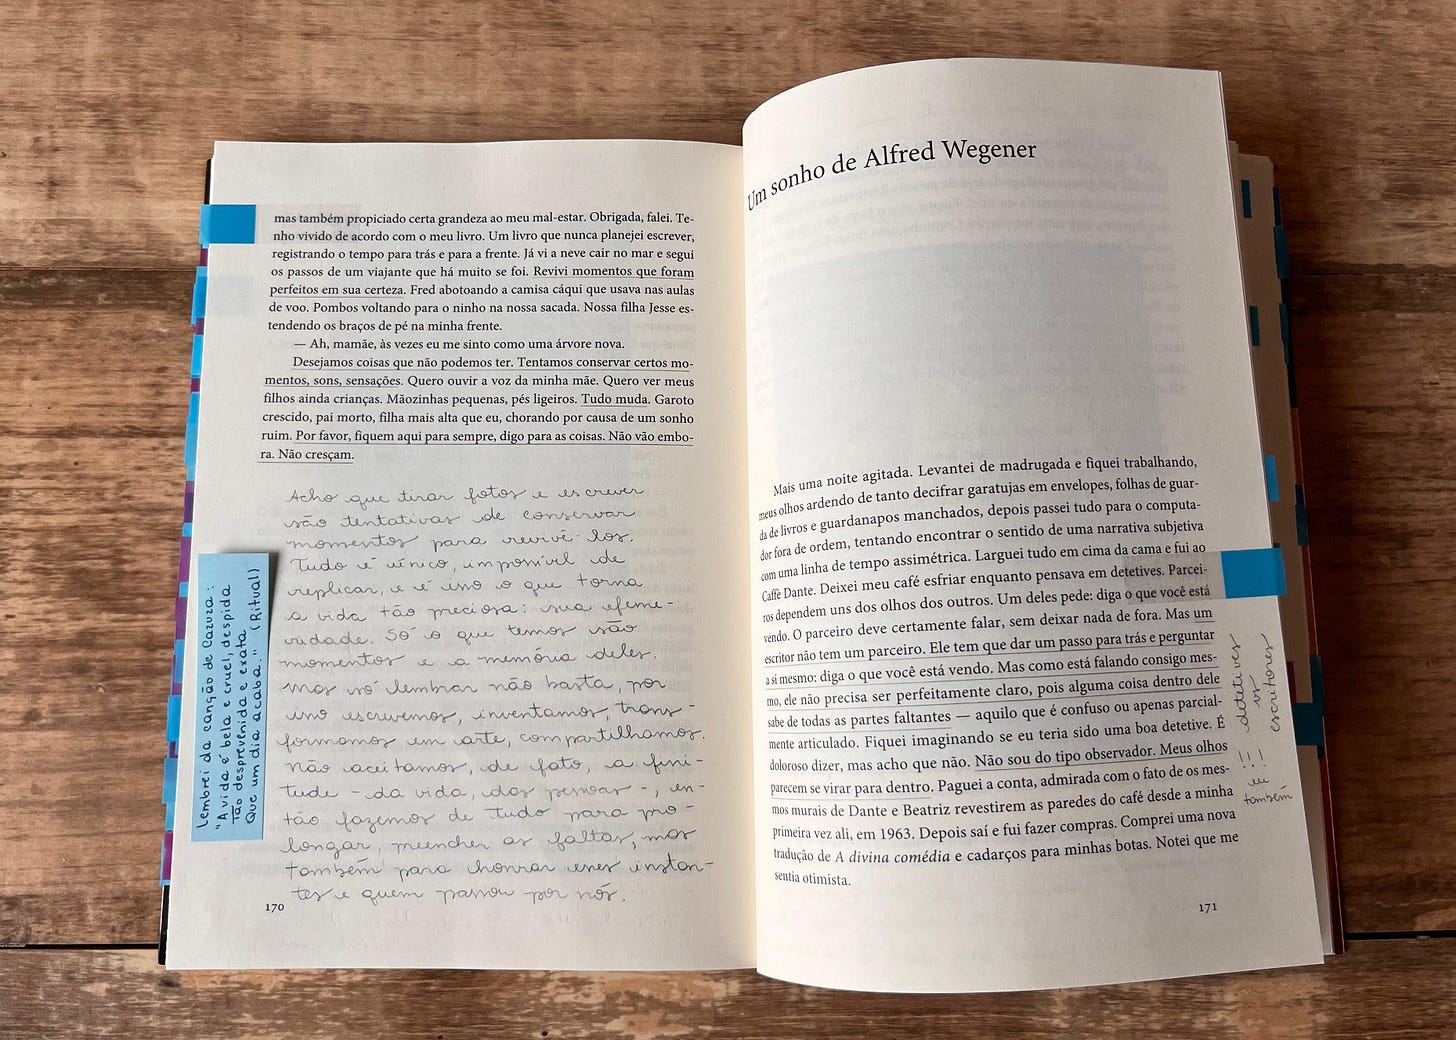 mas também propiciado certa grandeza ao meu mal-estar. Obrigada, falei. Te-
nho vivido de acordo com o meu livro. Um livro que nunca planejei escrever,
registrando o tempo para trás e para a frente. Já vi a neve cair no mar e segui
os passos de um viajante que há muito se foi. Revivi momentos que foram
perfeitos em sua certeza. Fred abotoando a camisa cáqui que usava nas aulas
de voo. Pombos voltando para o ninho na nossa sacada. Nossa filha Jesse es-
tendendo os braços de pé na minha frente.
— Ah, mamãe, às vezes eu me sinto como uma árvore nova.
Desejamos coisas que não podemos ter. Tentamos conservar certos mo-
mentos, sons, sensações. Quero ouvir a voz da minha mãe. Quero ver meus
filhos ainda crianças. Mãozinhas pequenas, pés ligeiros. Tudo muda. Garoto
crescido, pai morto, filha mais alta que eu, chorando por causa de um sonho
ruim. Por favor, fiquem aqui para sempre, digo para as coisas. Não vão embo-
ra. Não cresçam.
Acho que tirar fotos e escrever
são tentativas de conservar
momentos para revivê-los.
Tudo é único, impossível de
replicar, e é isso o que torna
a vida tão preciosa: sua efeme-
ridade. Só o que temos são
momentos e a memória deles.
Mas só lembrar não basta, por
isso escrevemos, inventamos, trans-
formamos em arte, compartilhamos.
Não aceitamos, de fato, a fini-
tude - da vida, das pessoas -, en-
tão fazemos de tudo para pro-
longar, preencher as faltas, mas
também para honrar esses instan-
tes e quem passou por nós.
Lembrei da canção de Cazuza:
"A vida é bela e cruel, despida
Tão desprevenida e exata
Que um dia acaba." (Ritual)
170
Um sonho de Alfred Wegener
Mais uma noite agitada. Levantei de madrugada e fiquei trabalhando,
meus olhos ardendo de tanto decifrar garatujas em envelopes, folhas de guar-
da de livros e guardanapos manchados, depois passei tudo para o computa-
dor fora de ordem, tentando encontrar o sentido de uma narrativa subjetiva
com uma linha de tempo assimétrica. Larguei tudo em cima da cama e fui ao
Caffè Dante. Deixei meu café esfriar enquanto pensava em detetives. Parcei-
ros dependem uns dos olhos dos outros. Um deles pede: diga o que você está
vendo. O parceiro deve certamente falar, sem deixar nada de fora. Mas um
escritor não tem um parceiro. Ele tem que dar um passo para trás e perguntar
a si mesmo: diga o que você está vendo. Mas como está falando consigo mes-
mo, ele não precisa ser perfeitamente claro, pois alguma coisa dentro dele
sabe de todas as partes faltantes — aquilo que é confuso ou apenas parcial-
mente articulado. Fiquei imaginando se eu teria sido uma boa detetive. É
doloroso dizer, mas acho que não. Não sou do tipo observador. Meus olhos
parecem se virar para dentro. Paguei a conta, admirada com o fato de os mes-
mos murais de Dante e Beatriz revestirem as paredes do café desde a minha
primeira vez ali, em 1963. Depois saí e fui fazer compras. Comprei uma nova
tradução de A divina comédia e cadarços para minhas botas. Notei que me
sentia otimista.
detetives
vs
escritores
!!!
eu
também
171